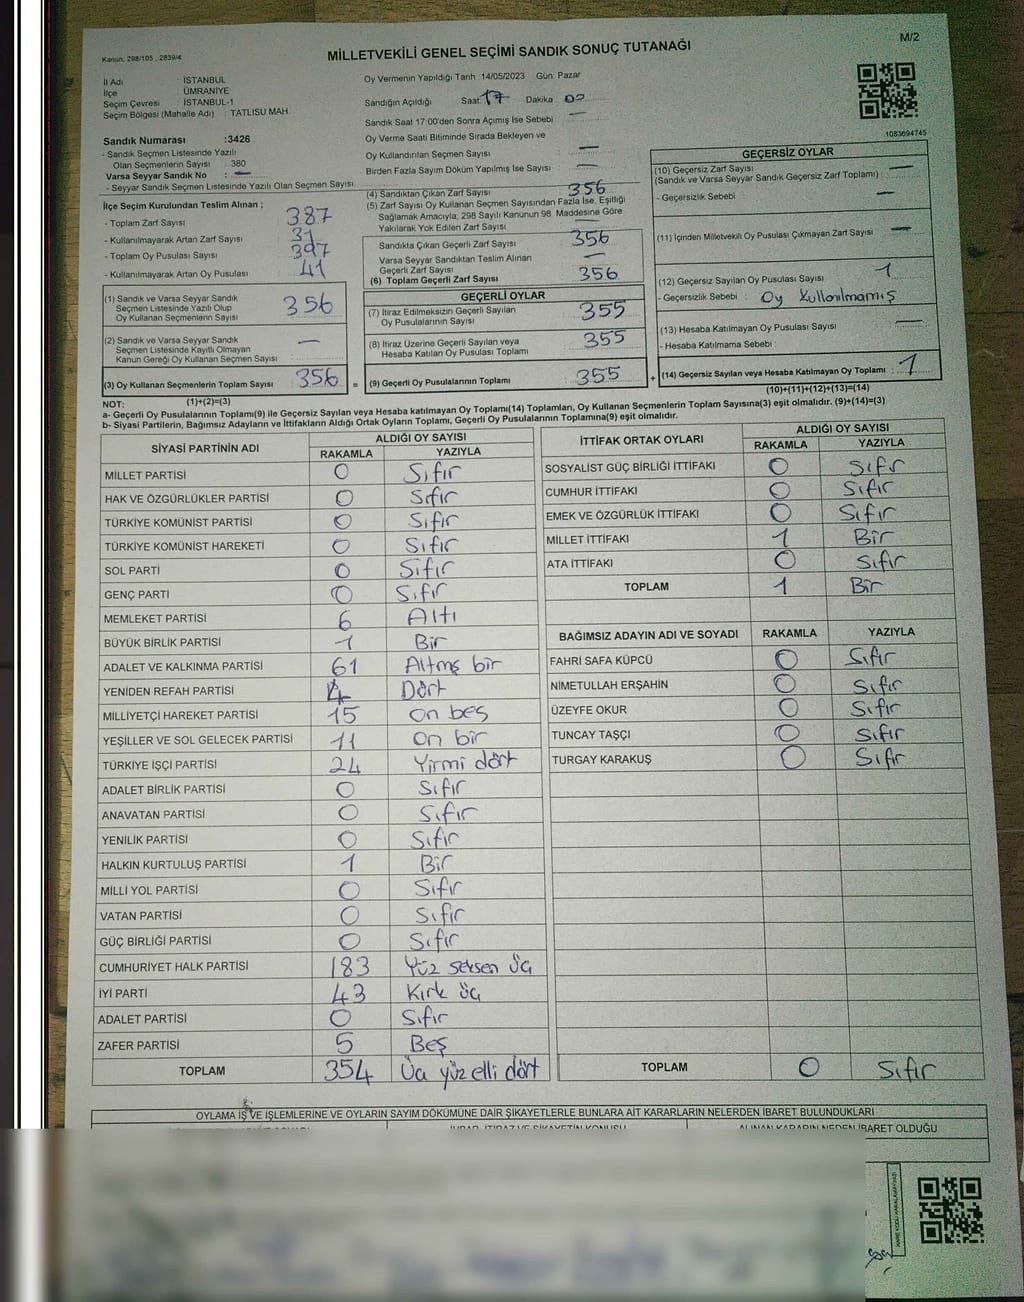 Kanun, 298/105 , 2839/4
MİLLETVEKİLİ GENEL SEÇİMİ SANDIK SONUÇ TUTANAĞI
M/2
İl Adı : İSTANBUL
İlçe ÜMRANİYE
Seçim Çevresi : İSTANBUL-1
Seçim Bölgesi (Mahalle Adı) : TATLISU MAH.
Sandık Numarası :3426
- Sandık Seçmen Listesinde Yazılı
Olan Seçmenlerin Sayısı : 380
Varsa Seyyar Sandık No : —
- Seyyar Sandık Seçmen Listesinde Yazılı Olan Seçmen Sayısı
Oy Vermenin Yapıldığı Tarih :14/05/2023 Gün: Pazar
Sandığın Açıldığı Saat: 17 Dakika 00
Sandık Saat 17:00'den Sonra Açımış İse Sebebi —
Oy Verme Saati Bitiminde Sırada Bekleyen ve
Oy Kullandırılan Seçmen Sayısı —
Birden Fazla Sayım Döküm Yapılmış İse Sayısı —
1083694745
İlçe Seçim Kurulundan Teslim Alınan ;
- Toplam Zarf Sayısı 387
- Kullanılmayarak Artan Zarf Sayısı 31
- Toplam Oy Pusulası Sayısı 397
- Kullanılmayarak Artan Oy Pusulası 41
(1) Sandık ve Varsa Seyyar Sandık
Seçmen Listesinde Yazılı Olup
Oy Kullanan Seçmenlerin Sayısı 356
(2) Sandık ve Varsa Seyyar Sandık
Seçmen Listesinde Kayıtlı Olmayan
Kanun Gereği Oy Kullanan Seçmen Sayısı —
(3) Oy Kullanan Seçmenlerin Toplam Sayısı 356 =
(1)+(2)=(3)
(4) Sandıktan Çıkan Zarf Sayısı 356
(5) Zarf Sayısı Oy Kullanan Seçmen Sayısından Fazla İse, Eşitliği
Sağlamak Amacıyla; 298 Sayılı Kanunun 98 Maddesine Göre
Yakılarak Yok Edilen Zarf Sayısı —
Sandıkta Çıkan Geçerli Zarf Sayısı 356
Varsa Seyyar Sandıktan Teslim Alınan
Geçerli Zarf Sayısı —
(6) Toplam Geçerli Zarf Sayısı 356
GEÇERLİ OYLAR
(7) İtiraz Edilmeksizin Geçerli Sayılan
Oy Pusulalarının Sayısı 355
(8) İtiraz Üzerine Geçerli Sayılan veya
Hesaba Katılan Oy Pusulası Toplamı 355
(9) Geçerli Oy Pusulalarının Toplamı 355 +
GEÇERSİZ OYLAR
(10) Geçersiz Zarf Sayısı —
(Sandık ve Varsa Seyyar Sandık Geçersiz Zarf Toplamı)
- Geçersizlik Sebebi —
(11) İçinden Milletvekili Oy Pusulası Çıkmayan Zarf Sayısı —
(12) Geçersiz Sayılan Oy Pusulası Sayısı 1
- Geçersizlik Sebebi : Oy kullanılmamış
(13) Hesaba Katılmayan Oy Pusulası Sayısı —
- Hesaba Katılmama Sebebi
(14) Geçersiz Sayılan veya Hesaba Katılmayan Oy Toplamı : 1
(10)+(11)+(12)+(13)=(14)
NOT:
a- Geçerli Oy Pusulalarının Toplamı(9) ile Geçersiz Sayılan veya Hesaba katılmayan Oy Toplamı(14) Toplamları, Oy Kullanan Seçmenlerin Toplam Sayısına(3) eşit olmalıdır. (9)+(14)=(3)
b- Siyasi Partilerin, Bağımsız Adayların ve İttifakların Aldığı Ortak Oyların Toplamı, Geçerli Oy Pusulalarının Toplamına(9) eşit olmalıdır.
SİYASİ PARTİNİN ADI ALDIĞI OY SAYISI
RAKAMLA YAZIYLA
MİLLET PARTİSİ 0 Sıfır
HAK VE ÖZGÜRLÜKLER PARTİSİ 0 Sıfır
TÜRKİYE KOMÜNİST PARTİSİ 0 Sıfır
TÜRKİYE KOMÜNİST HAREKETİ 0 Sıfır
SOL PARTİ 0 Sıfır
GENÇ PARTİ 0 Sıfır
MEMLEKET PARTİSİ 6 Altı
BÜYÜK BİRLİK PARTİSİ 1 Bir
ADALET VE KALKINMA PARTİSİ 61 Altmş bir
YENİDEN REFAH PARTİSİ 4 Dört
MİLLİYETÇİ HAREKET PARTİSİ 15 On beş
YEŞİLLER VE SOL GELECEK PARTİSİ 11 On bir
TÜRKİYE İŞÇİ PARTİSİ 24 Yirmi dört
ADALET BİRLİK PARTİSİ 0 Sıfır
ANAVATAN PARTİSİ 0 Sıfır
YENİLİK PARTİSİ 0 Sıfır
HALKIN KURTULUŞ PARTİSİ 1 Bir
MİLLİ YOL PARTİSİ 0 Sıfır
VATAN PARTİSİ 0 Sıfır
GÜÇ BİRLİĞİ PARTİSİ 0 Sıfır
CUMHURİYET HALK PARTİSİ 183 Yüz seksen üç
İYİ PARTİ 43 Kırk üç
ADALET PARTİSİ 0 Sıfır
ZAFER PARTİSİ 5 Beş
TOPLAM 354 Üç yüz elli dört
İTTİFAK ORTAK OYLARI ALDIĞI OY SAYISI
RAKAMLA YAZIYLA
SOSYALİST GÜÇ BİRLİĞİ İTTİFAKI 0 Sıfır
CUMHUR İTTİFAKI 0 Sıfır
EMEK VE ÖZGÜRLÜK İTTİFAKI 0 Sıfır
MİLLET İTTİFAKI 1 Bir
ATA İTTİFAKI 0 Sıfır
TOPLAM 1 Bir
BAĞIMSIZ ADAYIN ADI VE SOYADI RAKAMLA YAZIYLA
FAHRİ SAFA KÜPCÜ 0 Sıfır
NİMETULLAH ERŞAHİN 0 Sıfır
ÜZEYFE OKUR 0 Sıfır
TUNCAY TAŞÇI 0 Sıfır
TURGAY KARAKUŞ 0 Sıfır
TOPLAM 0 Sıfır
OYLAMA İŞ VE İŞLEMLERİNE VE OYLARIN SAYIM DÖKÜMÜNE DAİR ŞİKAYETLERLE BUNLARA AİT KARARLARIN NELERDEN İBARET BULUNDUKLARI
İHBAR, İTİRAZ VE ŞİKAYETİN KONUSU ALINAN KARARIN NEDEN İBARET OLDUĞU